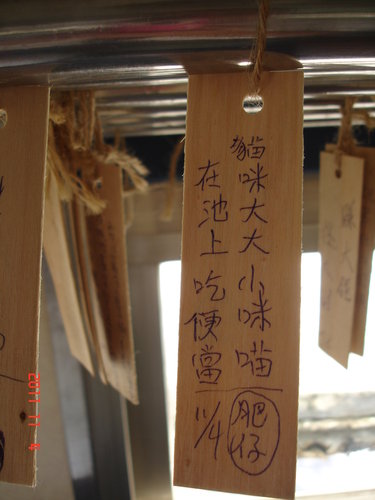 貓咪大大小咪喵
肥仔
在池上吃便當
11/4
2011 11 4